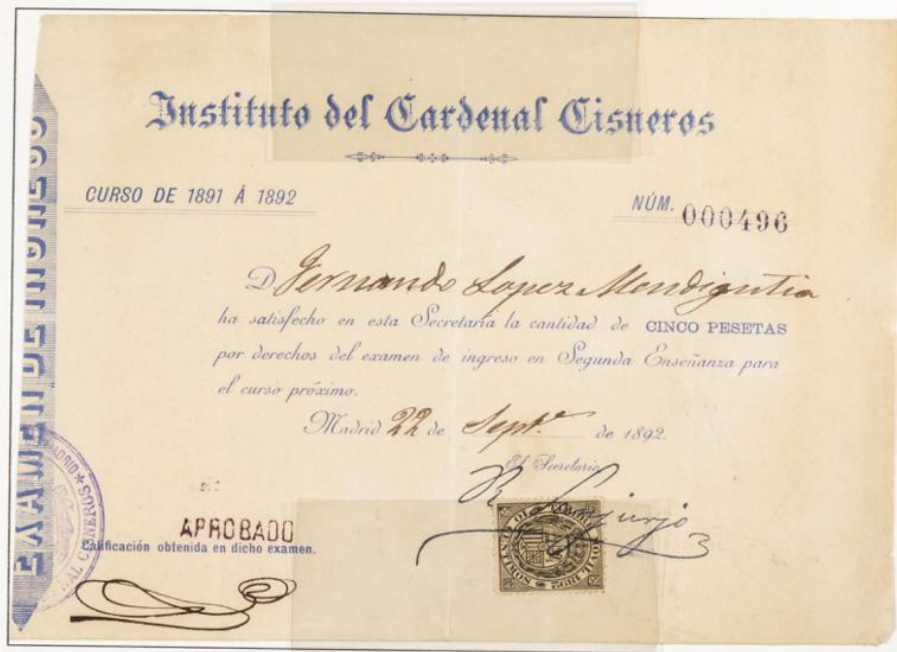 Instituto del Cardenal Cisneros
CURSO DE 1891 Á 1892
NÚM. 000496
D. Fernando Lopez Mendigutia
ha satisfecho en esta Secretaría la cantidad de CINCO PESETAS
por derechos del examen de ingreso en Segunda Enseñanza para
el curso próximo.
Madrid 22 de Septe. de 1892.
El Secretario
APROBADO
Calificación obtenida en dicho examen.
EXAMEN DE INGRESO
MADRID
CISNEROS
MOVIL 1892
10